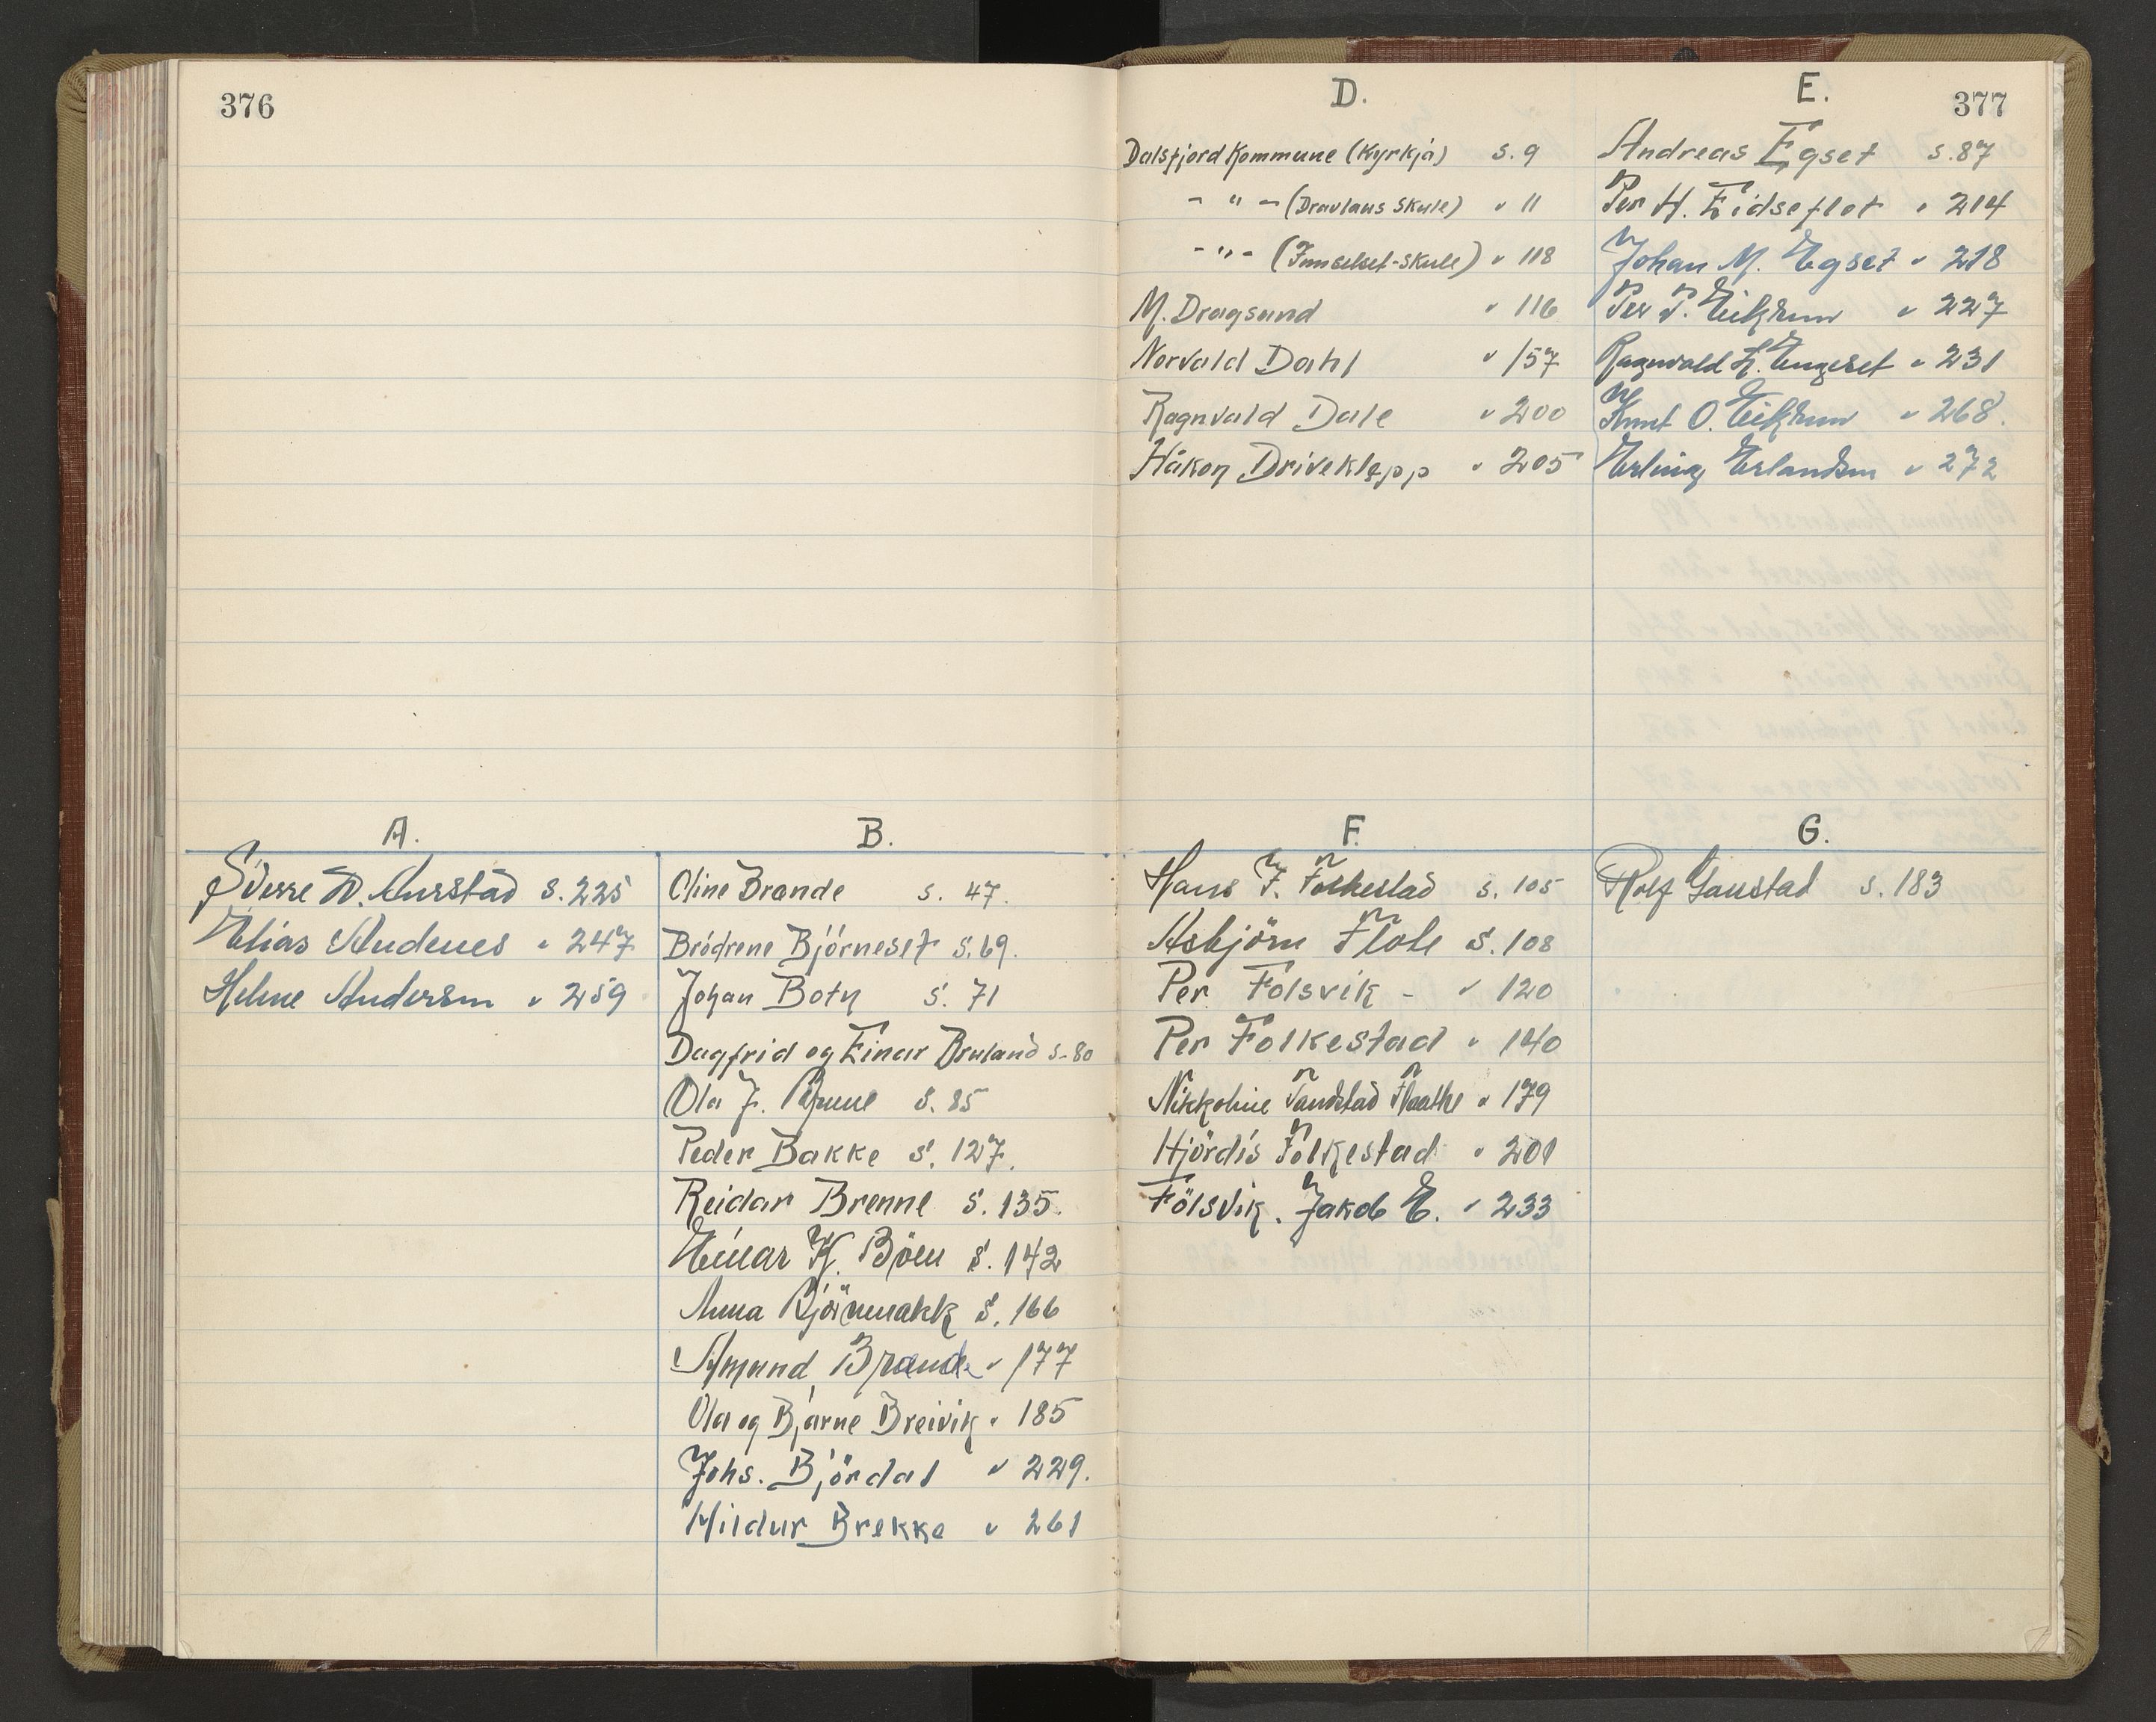 376
A.
Sverre D. Aurstad s. 225
Elias Audenes " 247
Helene Andersen " 259
B.
Oline Brande s. 47.
Brödrene Björneset s. 69.
Johan Botn s. 71
Dagfrid og Einar Bruland s. 80
Ola J. Brune s. 85
Peder Bakke s. 127.
Reidar Brenne s. 135.
Einar K. Böen s. 142
Anna Björnmakk s. 166
Amund Brande " 177
Ola og Bjarne Breivik " 185
Johs. Björdal " 229.
Hildur Brekke " 261
377
D.
Dalsfjord Kommune (Kyrkja) s. 9
- " - (Dravlaus Skule) " 11
- " - (-Skule) " 118
M. Dragsund " 116
Norvald Dahl " 157
Ragnvald Dale " 200
Håkon Driveklepp " 205
E.
Andreas Egset s. 87
Per H. Eidseflot " 214
Johan M. Egset " 218
Per P. Eikrem " 227
Ragnvald L. Engeset " 231
Knut O. Eikrem " 268.
Erling Erlandsen " 272
F.
Hans J. Folkestad s. 105
Asbjörn Flole s. 108
Per Folsvik - " 120
Per Folkestad " 140
Nikkoline Tandstad Flaathe " 179
Hjördis Folkestad " 201
Fölsvik. Jakob E. " 233
G.
Rolf Gaustad s. 183